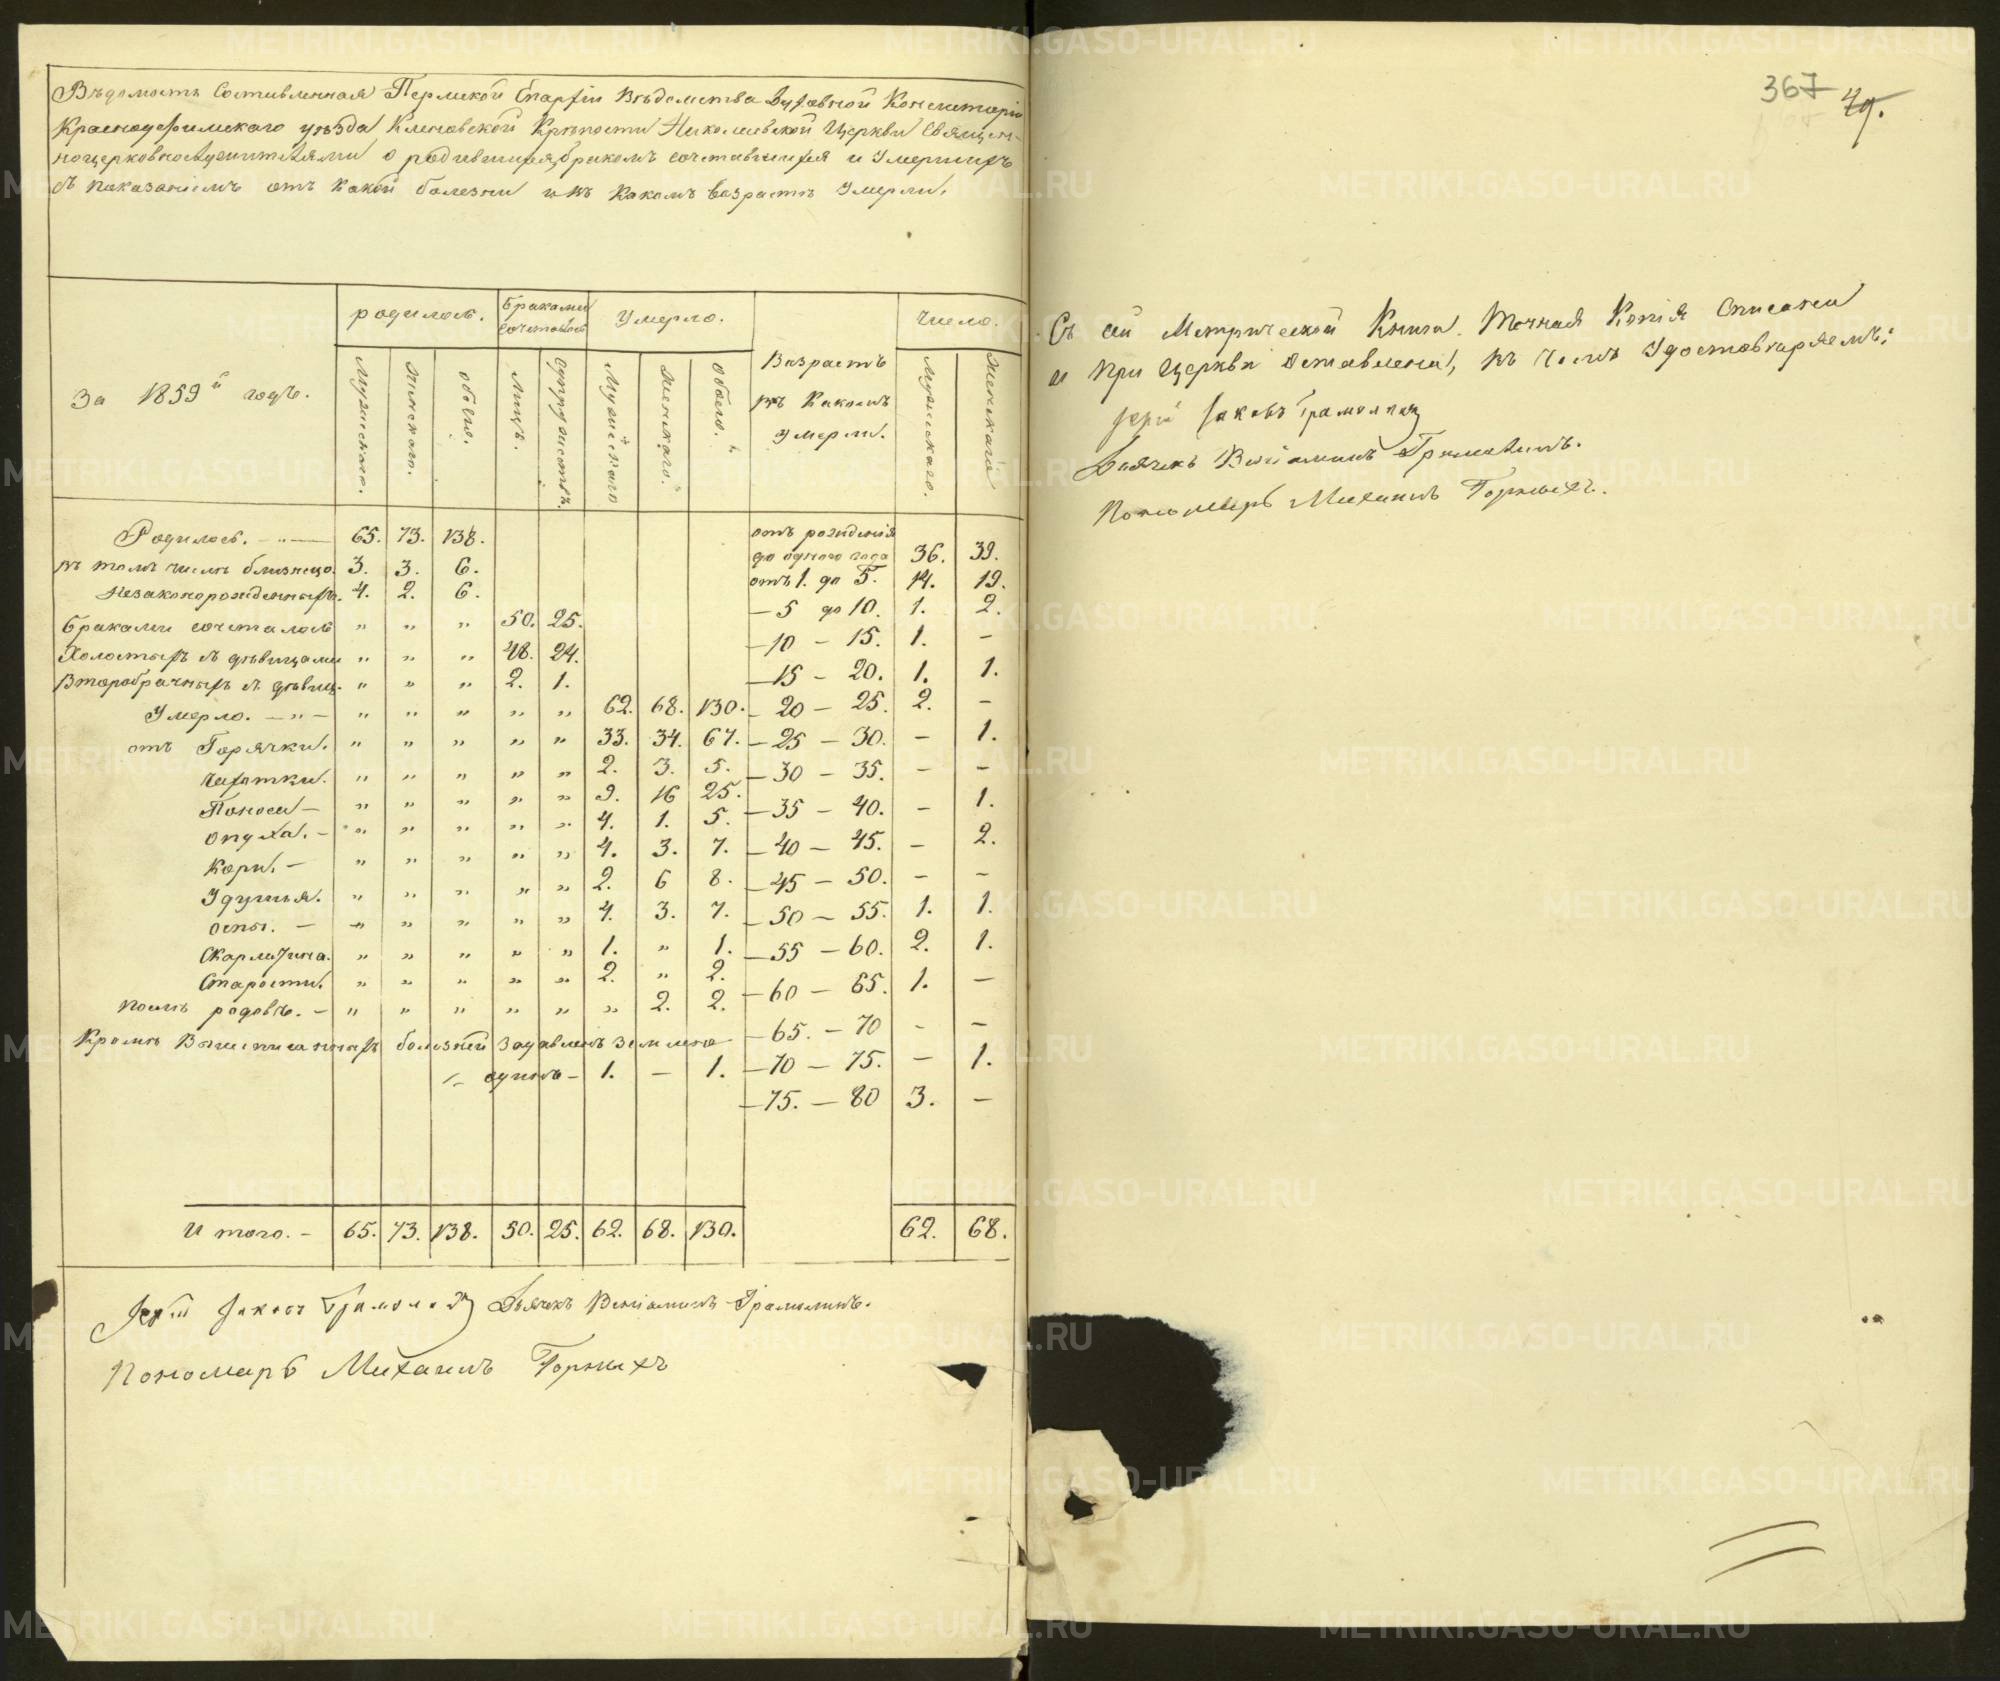 Вѣдомость Составленная Пермской Епархіи Вѣдомства Духовной Консисторіи
Красноуфимскаго уѣзда Кленовской Крѣпости Николаевской Церкви Священ-
ноцерковнослужителями о родившихся, бракомъ сочетавшихся и Умершихъ
съ показаніемъ отъ какой болезни и въ какомъ возрастѣ Умерли.
За 1859й годъ.
родилось.
браками сочеталось
Умерло.
Возрастъ въ какомъ Умерли.
число.
Мужскаго. Женскаго. обоего. Лицъ. Супружествъ. Мужескаго Женскаго. обоего. Мужскаго. Женскаго
Родилось. - „ — 65. 73. 138. отъ рожденія до одного года 36. 39.
въ томъ числѣ близнецо. 3. 3. 6. отъ 1. до 5. 14. 19.
Незаконорожденныхъ. 4. 2. 6. — 5 до 10. 1. 2.
Браками сочеталось „ „ „ 50. 25. — 10 — 15. 1. —
Холостыхъ съ дѣвицами „ „ „ 48. 24. — 15 — 20. 1. 1.
Второбрачныхъ съ дѣвиц. „ „ „ 2. 1.
Умерло. — „ — „ „ „ „ „ 62. 68. 130. — 20 — 25. 2. —
отъ Горячки. „ „ „ „ „ 33. 34. 67. — 25 — 30. — 1.
Чахотки. „ „ „ „ „ 2. 3. 5. — 30 — 35. — —
Поноса — „ „ „ „ „ 9. 16 25. — 35 — 40. — 1.
опуха. — „ „ „ „ „ 4. 1. 5.
Кори. — „ „ „ „ „ 4. 3. 7. — 40 — 45. — 2.
Удушья. „ „ „ „ „ 2. 6 8. — 45 — 50. — —
оспы. — „ „ „ „ „ 4. 3. 7. — 50 — 55. 1. 1.
Скарлатина. „ „ „ „ „ 1. „ 1. — 55 — 60. 2. 1.
Старости. „ „ „ „ „ 2. „ 2. — 60 — 65. 1. —
послѣ родовъ. — „ „ „ „ „ „ 2. 2.
Кромѣ Вышеписанныхъ болѣзней задавленъ землею — 65. — 70 - —
одинъ — 1. — 1. — 70 — 75. — 1.
— 75. — 80 3. —
Итого. — 65. 73. 138. 50. 25. 62. 68. 130. 62. 68.
Іерей Іаковъ Діячекъ Веніаминъ
Пономарь Михаилъ Горныхъ
367 49.
Съ сей Метрической Книги. Точная Копія Списана
и при Церкви оставлена, въ чемъ Удостовѣряемъ:
Іерей Іаковъ
Діячекъ Веніаминъ
Пономарь Михаилъ Горныхъ.
METRIKI.GASO-URAL.RU